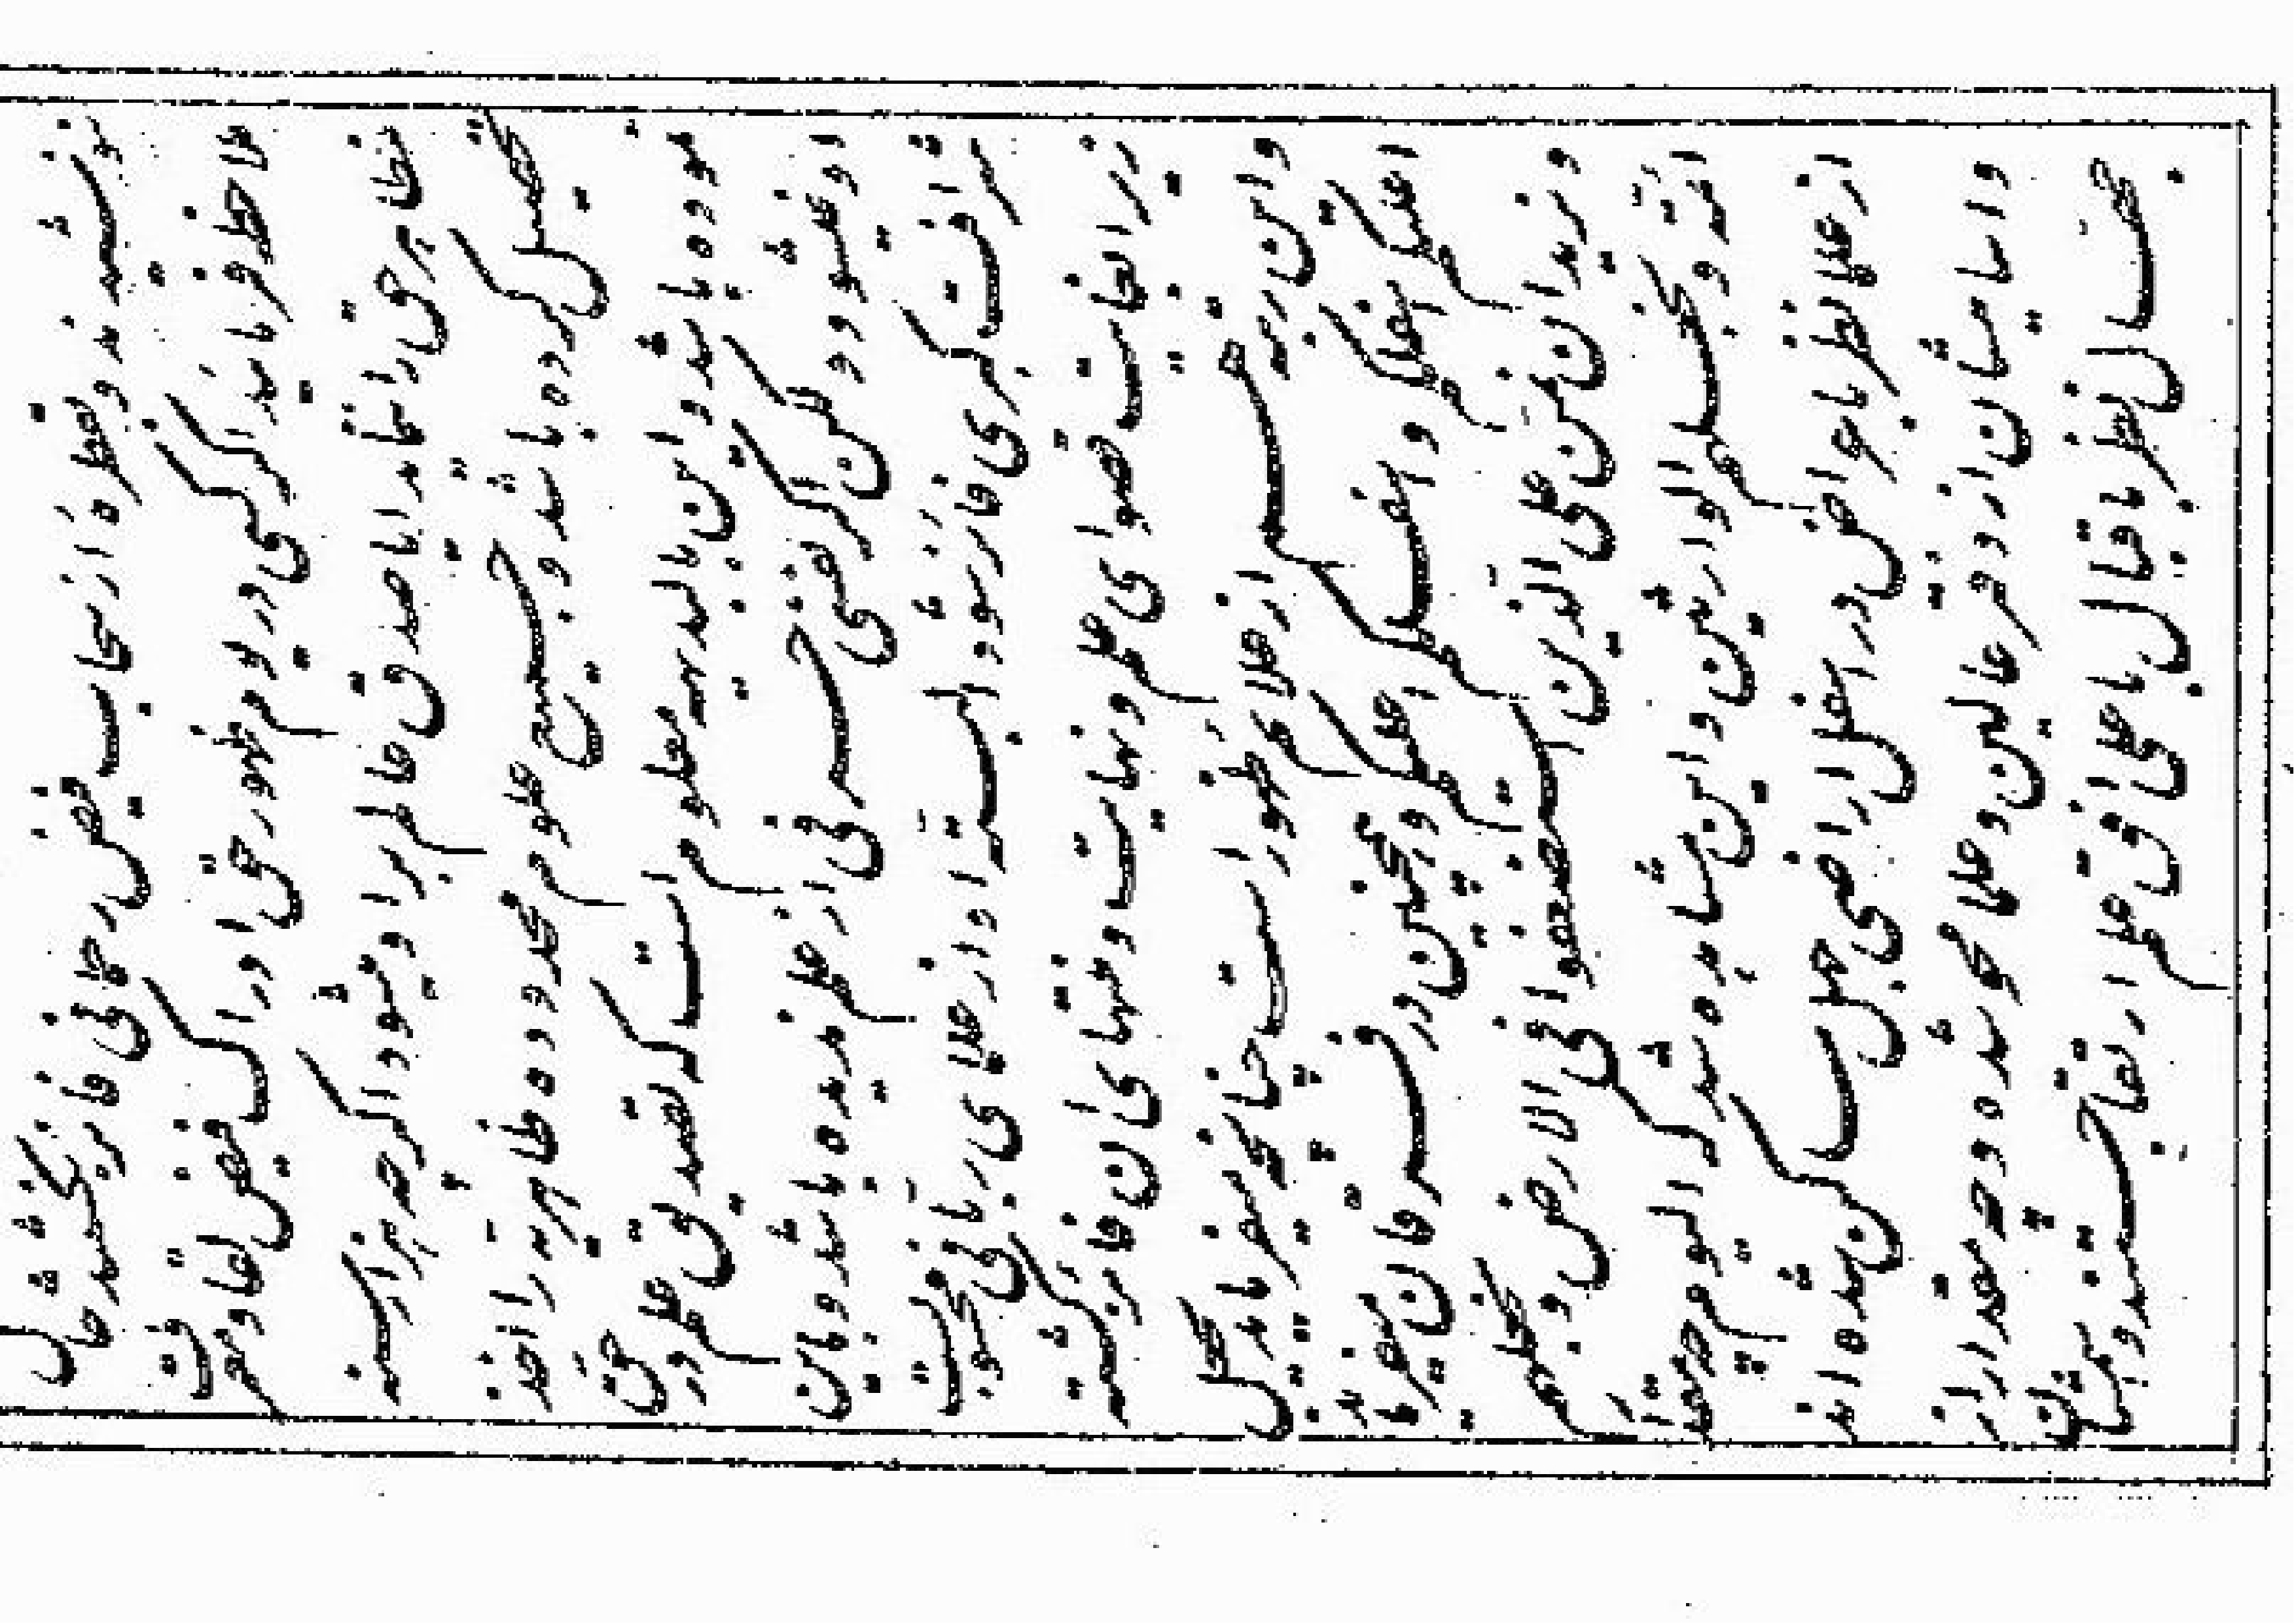 ننوشیدند و قطرهٔ از سحاب فیض رحمانی فائز نگشتند حال
ملاحظه فرمائید اگر کسی در یوم ظهور حق ادراک فیض لقا و معرفت
مظاهر حق را ننماید آیا صدق عالم بر او میشود اگرچه هزار سنه
تحصیل کرده باشد و جمیع علوم محدوده ظاهریه را اخذ
نموده باشد و این بالبدیهه معلوم است که تصدیق علم در حق
او نمیشود ولکن اگر نفسی حرفی از علم ندیده باشد و باین
شرافت کبری فائز شود البته او از علمای ربانی محسوبست
زیرا بغایت قصوای علم و نهایت و منتهای آن فائز گشته
و این رتبه از علائم ظهور است چنانچه میفرماید یجعل
اعلاکم اسفلکم و اسفلکم اعلاکم و همچنین در فرقان میفرماید
و نرید ان نمن علی الذین استضعفوا فی الارض و نجعلهم
ائمة و نجعلهم الوارثین و این مشاهده شد که الیوم چه مقدار
از علما نظر باعراض در اسفل اراضی جهل ساکن شده اند
و اسامیشان از دفتر عالین و علما محو شده و چه مقدار از
جهال نظر باقبال باعلی افق علم ارتقا جستند و